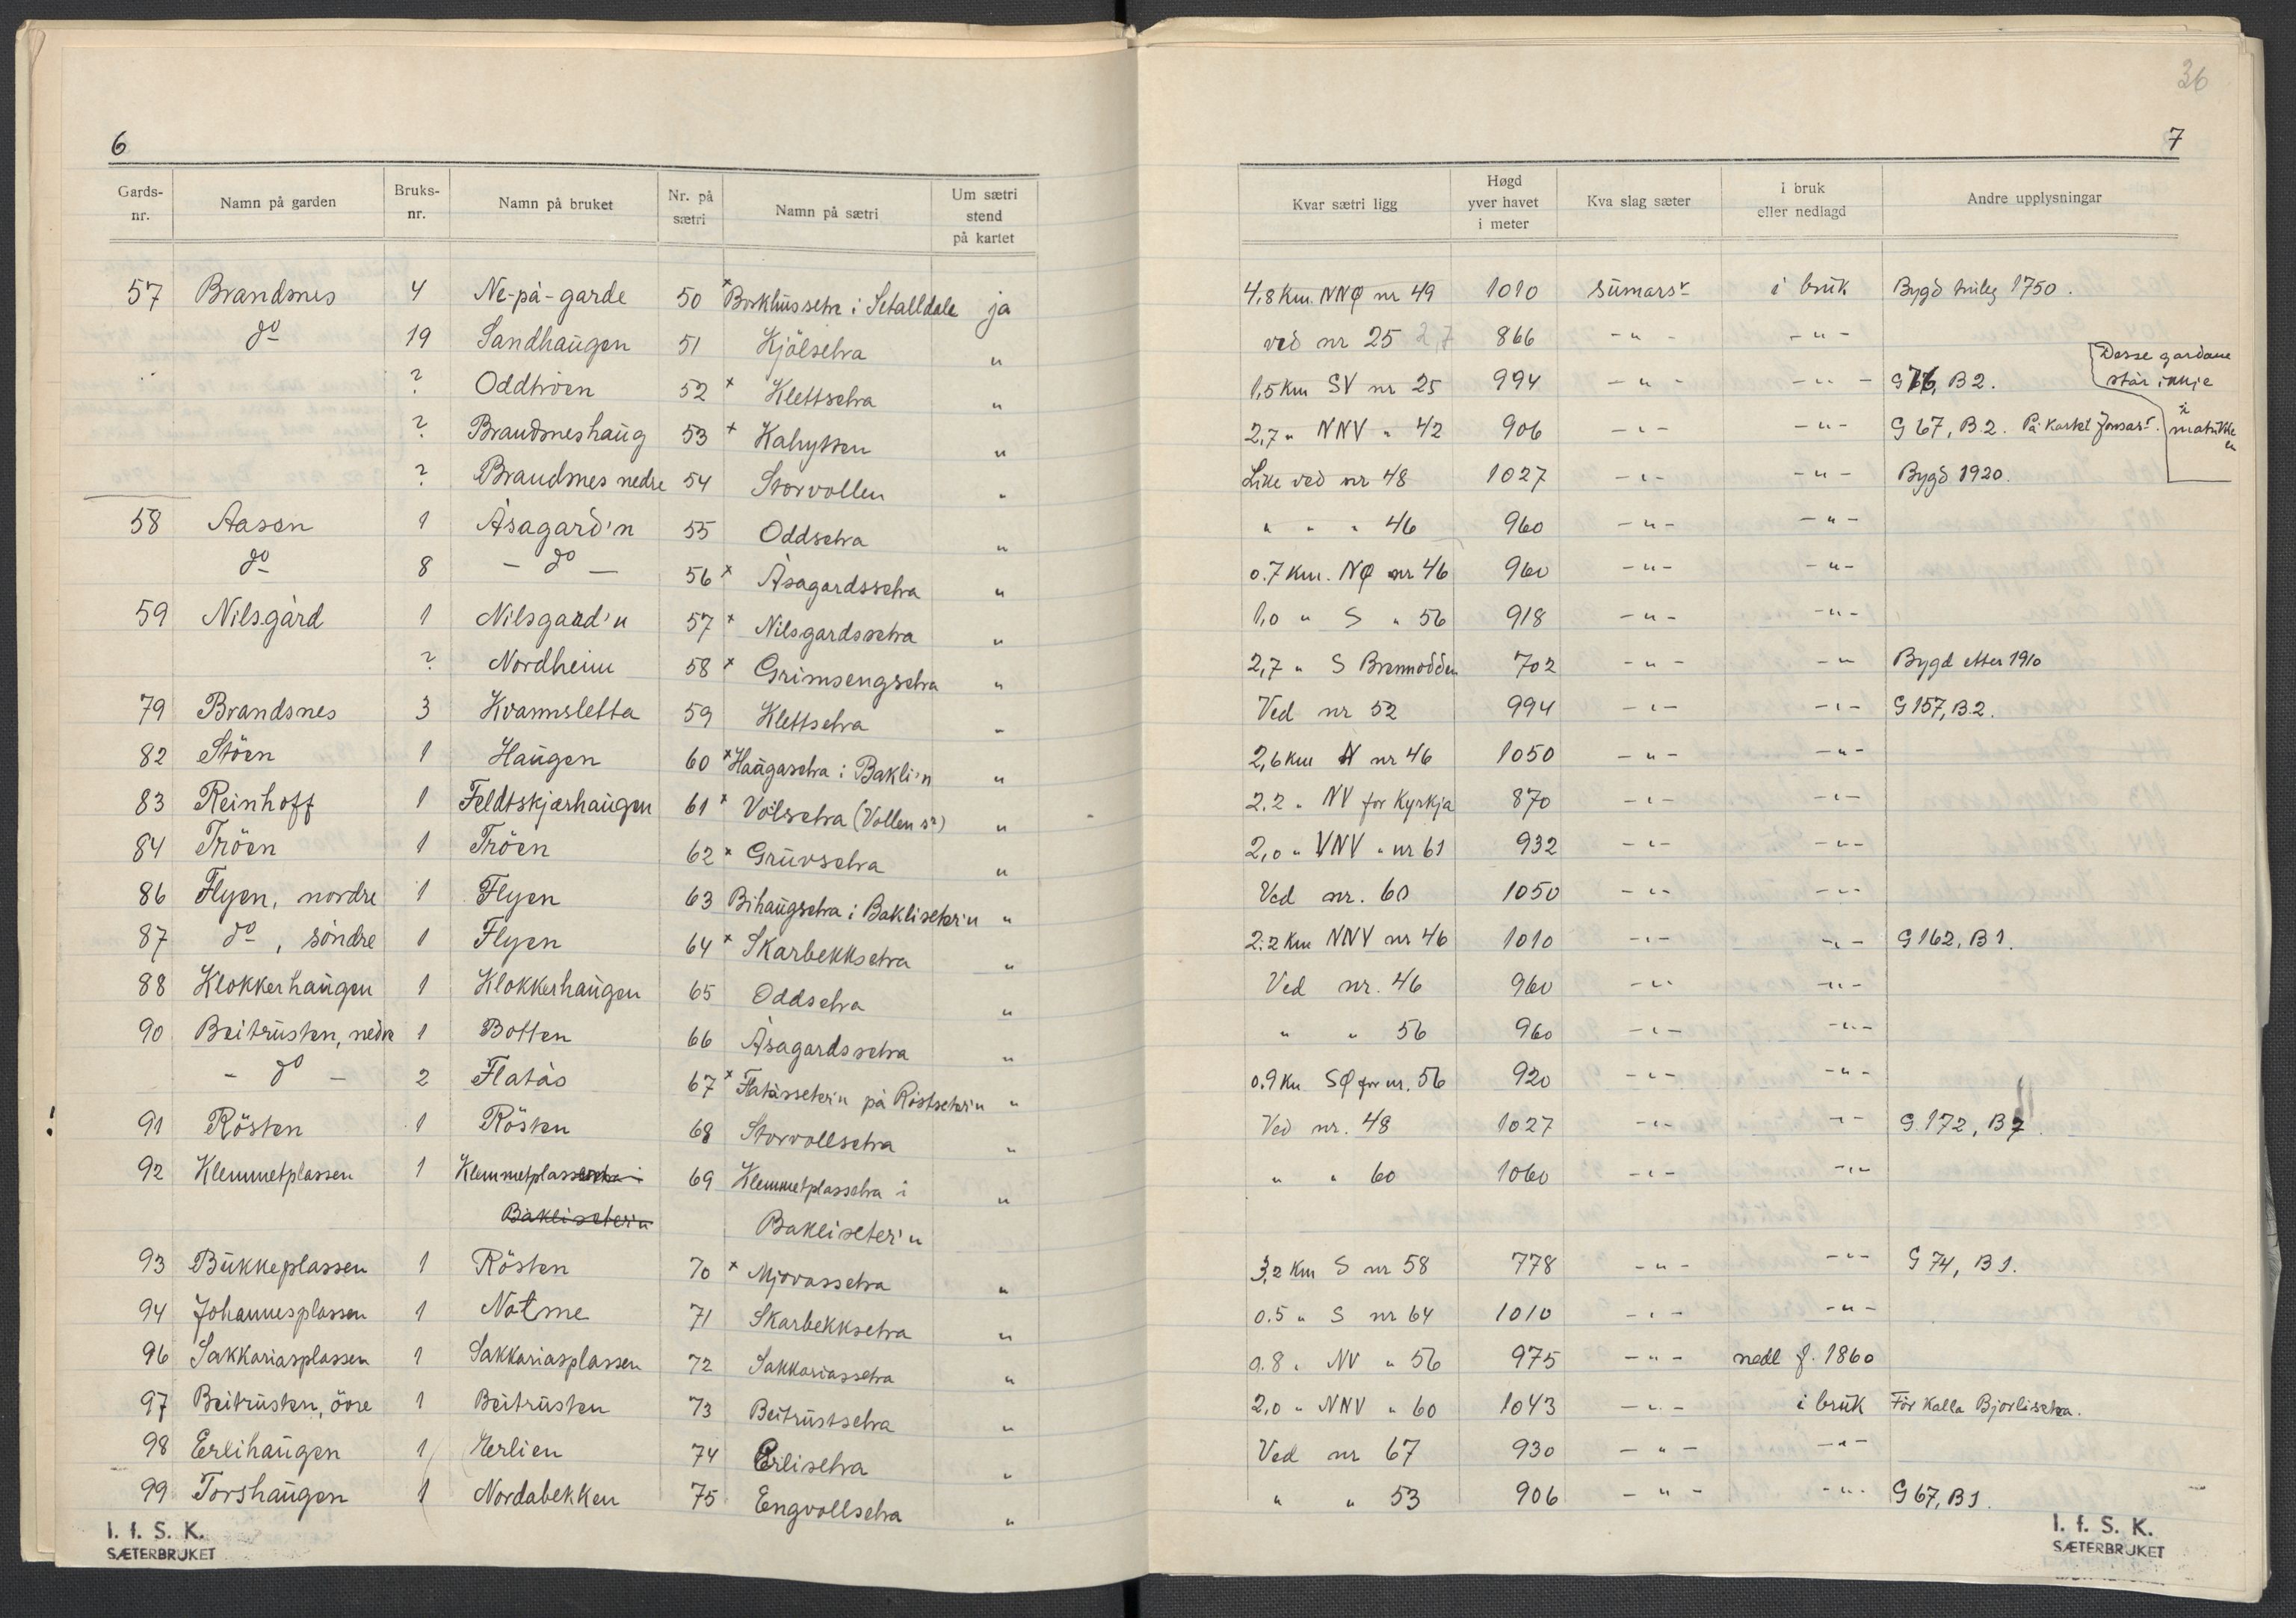 6
Gards-nr. Namn på garden Bruks-nr. Namn på bruket Nr. på sætri Namn på sætri Um sætri stend på kartet
57 Brandsnes 4 Ne-på-garde 50 × Borkhussetra i Setalldale ja
do 19 Sandhaugen 51 Kjölsetra "
? Oddtröen 52 × Klettsetra "
? Brandsneshaug 53 + Kahytten "
? Brandsnes nedre 54 Storvollen "
58 Aasen 1 Åsagard'n 55 Oddsetra "
do 8 - do - 56 × Åsagardssetra "
59 Nilsgård 1 Nilsgard'n 57 × Nilsgardssetra "
? Nordheim 58 × Grimsengsetra "
79 Brandsnes 3 Kvannsletta 59 Klettsetra "
82 Stöen 1 Haugen 60 × Haugasetra i Bakli'n "
83 Reinhoff 1 Feldtskjærhaugen 61 × Volsetra (Vollen sr) "
84 Tröen 1 Tröen 62 × Gruvsetra "
86 Flyen, nordre 1 Flyen 63 Bihaugsetra i Bakliseter'n "
87 do, söndre 1 Flyen 64 × Skarbekksetra "
88 Klokkerhaugen 1 Klokkerhaugen 65 Oddsetra "
90 Beitrusten, nedre 1 Botten 66 Åsagardssetra "
- do - 2 Flatås 67 × Flatåsseter'n på Röstseter'n "
! 91 Rösten 1 Rösten 68 Storvollsetra "
92 Klemmetplassen 1 Klemmetplassetra i 69 Klemmetplassetra i "
Bakliseter'n Bakliseter'n
93 Bukkeplassen 1 Rösten 70 × Mjovassetra "
94 Johannesplassen 1 Notme 71 Skarbekksetra "
96 Sakkariasplassen 1 Sakkariasplassen 72 Sakkariassetra "
97 Beitrusten, övre 1 Beitrusten 73 Beitrustsetra "
98 Erlihaugen 1 Erlien 74 Erlisetra "
99 Torshaugen 1 Nordabekken 75 Engvollsetra "
I. f. S. K.
SÆTERBRUKET
36
7
Kvar sætri ligg Høgd yver havet i meter Kva slag sæter i bruk eller nedlagd Andre upplysningar
4,8 km. NNØ nr 49 1010 sumarsr i bruk Bygd truleg 1750.
ved nr 25 2,7 866 - " - - " -
Desse gardane står ikkje i matrikkelen
1,5 km SV nr 25 994 - " - - " - G 76, B 2.
2,7 " NNV " 42 906 - " - - " - G 67, B. 2. På kartet Jonsar.
Like ved nr 48 1027 - " - - " - Bygd 1920.
" " " 46 960 - " - - " -
0.7 km. NØ nr 46 960 - " - - " -
1,0 " S " 56 918 - " - - " -
2,7 " S Brennodden 702 - " - - " Bygd etter 1910
Ved nr 52 994 - " - - " - G 157, B. 2.
2,6 km N nr 46 1050 - " - - " -
2.2 " NV for Kyrkja 870 - " - - " -
2,0 " VNV " nr 61 932 - " - - " -
Ved nr. 60 1050 - " - - " -
2.2 km NNV nr 46 1010 - " - - " - G 162, B 1.
Ved nr. 46 960 - " - - " -
" " 56 960 - " - - " -
0.9 km SØ for nr. 56 920 - " - - " -
Ved nr. 48 1027 - " - - " - G. 172, B 7.
" " 60 1060 - " - - " -
3,2 km S nr 58 778 - " - - " - G 74, B 1.
0.5 " S nr 64 1010 - " - - " -
0.8 " NV " 56 975 - " - nedl f. 1860
2,0 " NNV " 60 1043 - " - i bruk För kalla Bjorlisetra.
Ved nr 67 930 - " - - " -
" " 53 906 - " - - " - G 67, B 1.
I. f. S. K.
SÆTERBRUKET